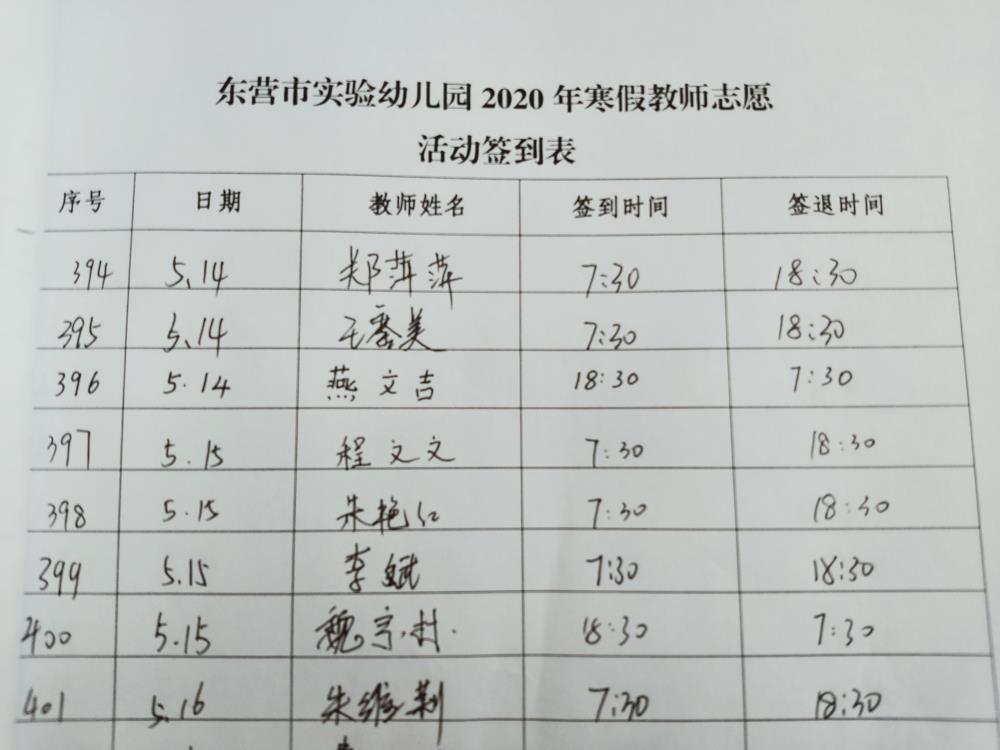 东营市实验幼儿园 2020 年寒假教师志愿
活动签到表
序号 日期 教师姓名 签到时间 签退时间
394 5.14 郑萍萍 7:30 18:30
395 5.14 王美 7:30 18:30
396 5.14 燕文吉 18:30 7:30
397 5.15 程文文 7:30 18:30
398 5.15 朱艳红 7:30 18:30
399 5.15 李斌 7:30 18:30
400 5.15 魏村 18:30 7:30
401 5.16 朱维 7:30 18:30